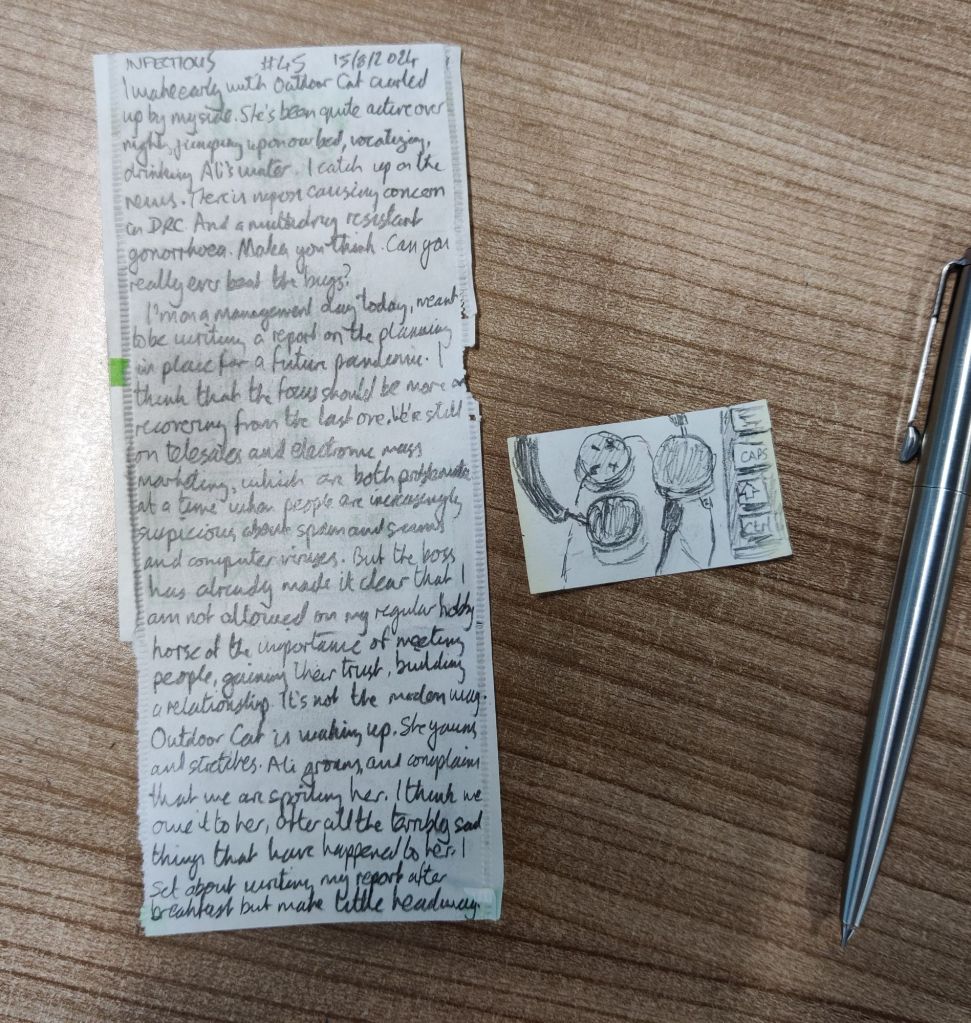 INFECTIOUS #45 15/8/2024
I wake early with Outdoor Cat curled
up by my side. She's been quite active over
night, jumping up on our bed, vocalizing,
drinking Ali's water. I catch up on the
news. There is mpox causing concern
in DRC. And a multidrug resistant
gonorrhoea. Makes you think. Can you
really ever beat the bugs?
I'm on a management day today, meant
to be writing a report on the planning
in place for a future pandemic. I
think that the focus should be more on
recovering from the last one. We're still
on telesales and electronic mass
marketing, which are both problematic
at a time when people are increasingly
suspicious about spam and scams
and computer viruses. But the boss
has already made it clear that I
am not allowed on my regular hobby
horse of the importance of meeting
people, gaining their trust, building
a relationship. It's not the modern way.
Outdoor Cat is waking up. She yawns
and stretches. Ali groans and complains
that we are spoiling her. I think we
owe it to her, after all the terribly sad
things that have happened to her. I
set about writing my report after
breakfast but make little headway.
CAPS